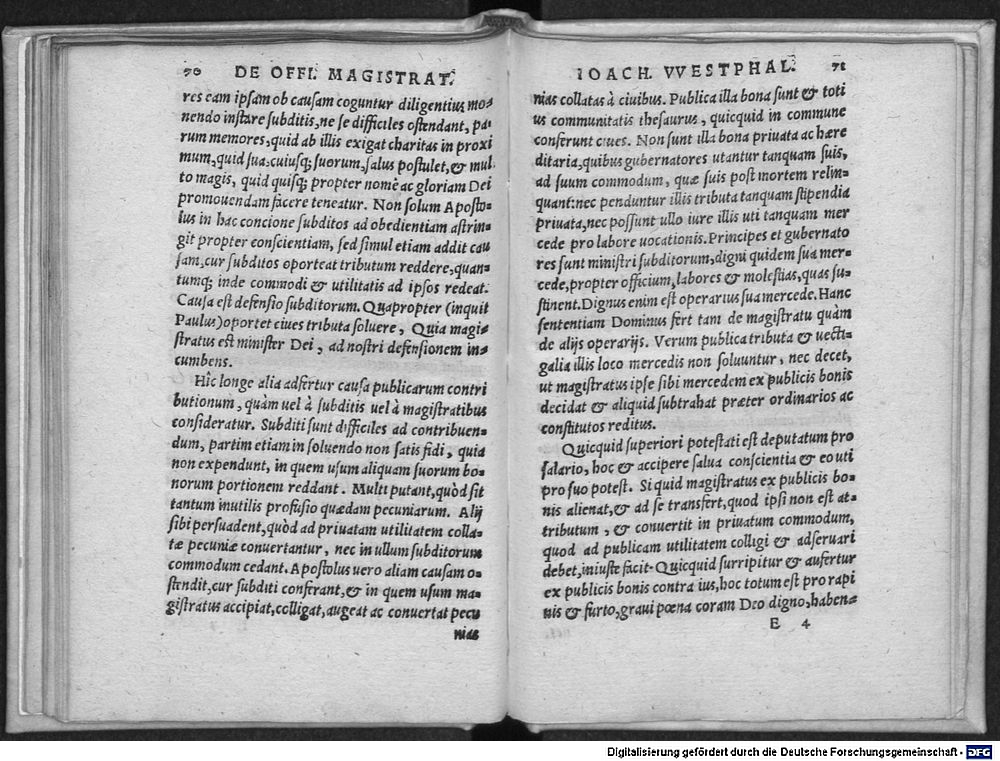 70 DE OFFI. MAGISTRAT.
res eam ipsam ob causam coguntur diligentius mo=
nendo instare subditis, ne se difficiles ostendant, pa=
rum memores, quid ab illis exigat charitas in proxi
mum, quid sua, cuiusq; suorum, salus postulet, & mul
to magis, quid quisq; propter nomē ac gloriam Dei
promouendam facere teneatur. Non solum Aposto=
lus in hac concione subditos ad obedientiam astrin=
git propter conscientiam, sed simul etiam addit cau
sam, cur subditos oporteat tributum reddere, quan=
tumq; inde commodi & utilitatis ad ipsos redeat.
Causa est defensio subditorum. Quapropter (inquit
Paulus) oportet ciues tributa soluere, Quia magi=
stratus est minister Dei, ad nostri defensionem in=
cumbens.
Hîc longe alia adfertur causa publicarum contri
butionum, quàm uel à subditis uel à magistratibus
consideratur. Subditi sunt difficiles ad contribuen=
dum, partim etiam in soluendo non satis fidi, quia
non expendunt, in quem usum aliquam suorum bo=
norum portionem reddant. Multi putant, quòd sit
tantum inutilis profusio quædam pecuniarum. Alij
sibi persuadent, quòd ad priuatam utilitatem colla=
tæ pecuniæ conuertantur, nec in ullum subditorum
commodum cedant. Apostolus uero aliam causam o=
stendit, cur subditi conferant, & in quem usum ma=
gistratus accipiat, colligat, augeat ac conuertat pecu
nias
IOACH. VVESTPHAL. 71
nias collatas à ciuibus. Publica illa bona sunt & toti
us communitatis thesaurus, quicquid in commune
conferunt ciues. Non sunt illa bona priuata ac hære
ditaria, quibus gubernatores utantur tanquam suis,
ad suum commodum, quæ suis post mortem relin=
quant: nec penduntur illis tributa tanquam stipendia
priuata, nec possunt ullo iure illis uti tanquam mer
cede pro labore uocationis. Principes et gubernato
res sunt ministri subditorum, digni quidem sua mer=
cede, propter officium, labores & molestias, quas su=
stinent. Dignus enim est operarius sua mercede. Hanc
sententiam Dominus fert tam de magistratu quàm
de alijs operarijs. Verum publica tributa & uecti=
galia illis loco mercedis non soluuntur, nec decet,
ut magistratus ipse sibi mercedem ex publicis bonis
decidat & aliquid subtrahat præter ordinarios ac
constitutos reditus.
Quicquid superiori potestati est deputatum pro
salario, hoc & accipere salua conscientia & eo uti
pro suo potest. Si quid magistratus ex publicis bo=
nis alienat, & ad se transfert, quod ipsi non est at=
tributum, & conuertit in priuatum commodum,
quod ad publicam utilitatem colligi & adseruari
debet, iniuste facit. Quicquid surripitur & aufertur
ex publicis bonis contra ius, hoc totum est pro rapi
nis & furto, graui pœna coram Deo digno, haben=
E 4
Digitalisierung gefördert durch die Deutsche Forschungsgemeinschaft - DFG